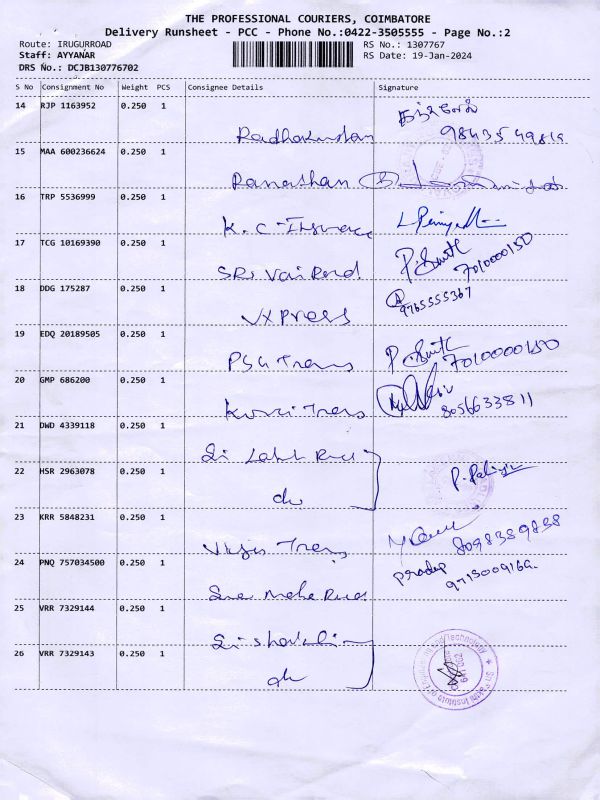 THE PROFESSIONAL COURIERS, COIMBATORE
Delivery Runsheet - PCC - Phone No.:0422-3505555 - Page No.:2
Route: IRUGURROAD
RS No.: 1307767
Staff: AYYANAR
RS Date: 19-Jan-2024
DRS No.: DCJB130776702
S No Consignment No Weight PCS Consignee Details Signature
14 RJP 1163952 0.250 1
Radhakrishnan
15 MAA 600236624 0.250 1
16 TRP 5536999 0.250 1
K.C-Insurance
17 TCG 10169390 0.250 1
P. Smith
7010000150
18 DDG 175287 0.250 1
VXPress
9765555367
19 EDQ 20189505 0.250 1
PSG Trans P. Smith 7010000150
20 GMP 686200 0.250 1
8056633811
21 DWD 4339118 0.250 1
22 HSR 2963078 0.250 1
do
23 KRR 5848231 0.250 1
8098389838
24 PNQ 757034500 0.250 1
pradeep
25 VRR 7329144 0.250 1
26 VRR 7329143 0.250 1
do